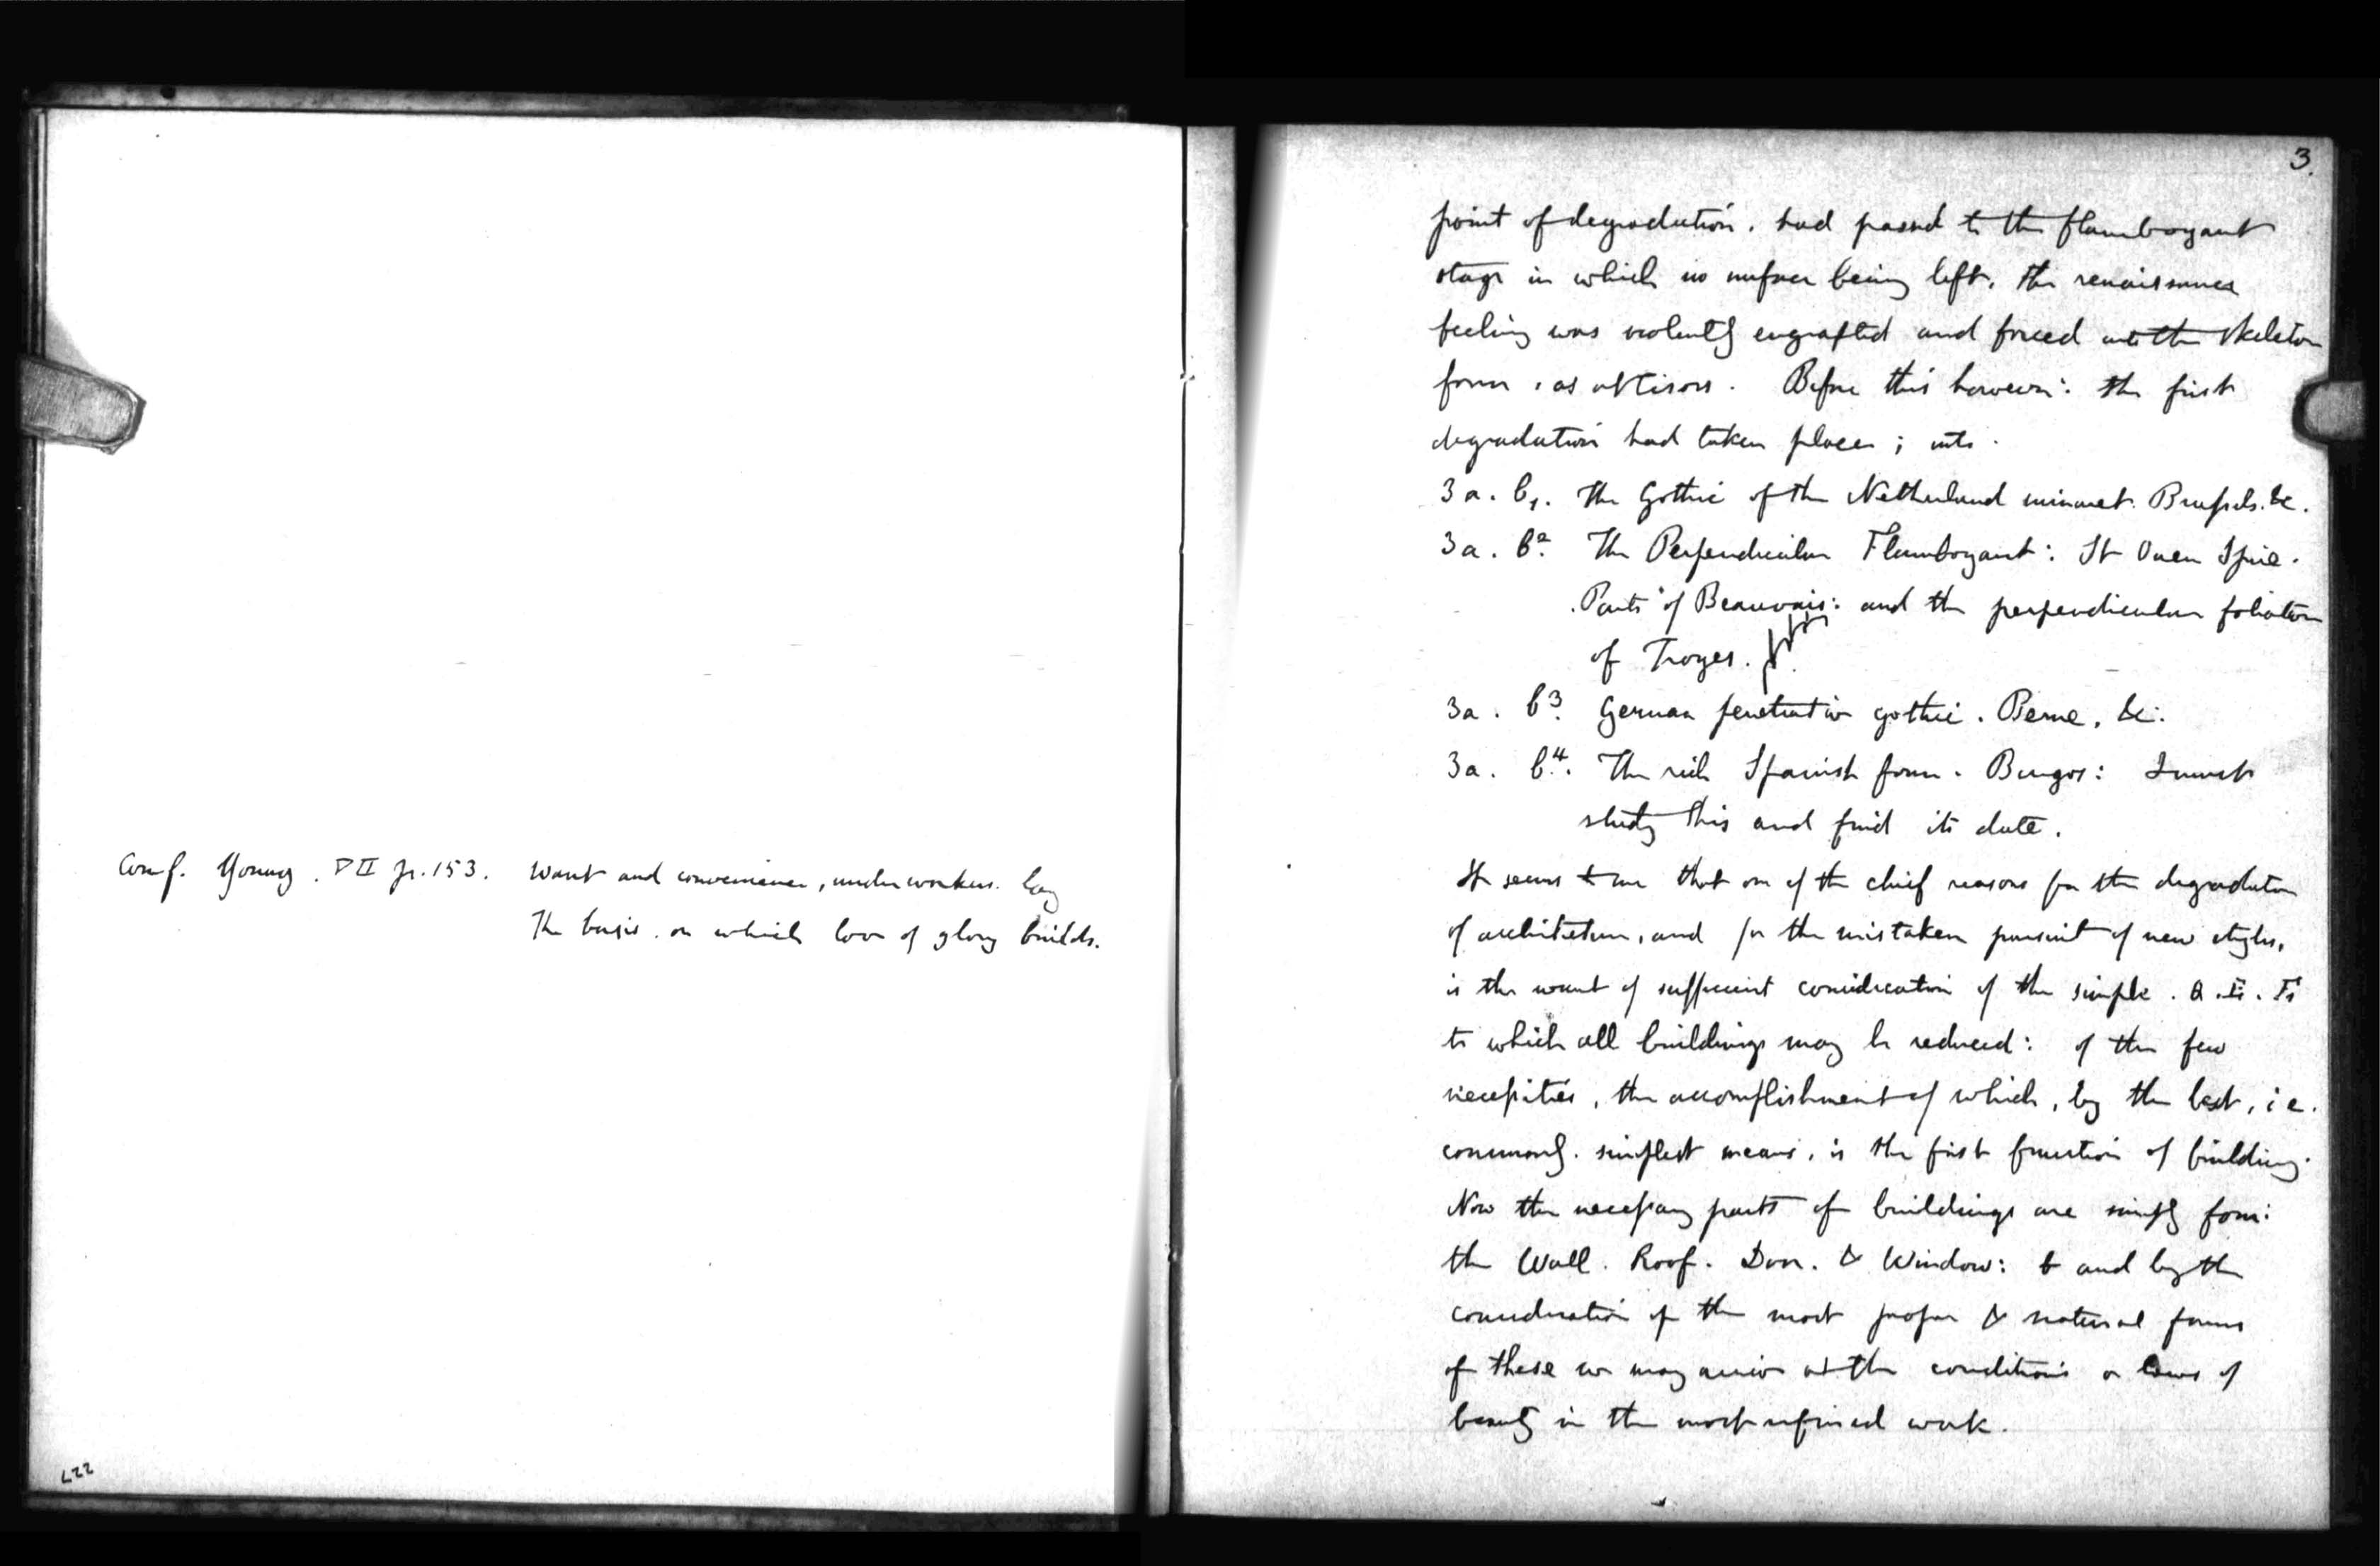 Conf. Young. V II p. 153. Want and convenience, underworkers. lay
The basis. on which love of glory builds.
L22
3.
point of degradation, had passed to the flamboyant
stage in which no surface being left, the renaissance
feeling was violently engrafted and forced on the skeleton
form, as at Gisors. Before this however: the first
degradation had taken place; into.
3a. b1. The Gothic of the Netherland minaret. Brussels. &c.
3a. b2. The Perpendicular Flamboyant: St Ouen Spire.
Parts of Beauvais: and the perpendicular foliation
of Troyes.
3a. b3. German penetrative gothic. Berne, &c.
3a. b4. The rich Spanish form. Burgos: I must
study this and find its date.
It seems to me that one of the chief reasons for the degradation
of architecture, and for the mistaken pursuit of new styles,
is the want of sufficient consideration of the simple.
to which all buildings may be reduced: of the few
necessities, the accomplishment of which, by the best, i.e.
commonly. simplest means, is the first function of building.
Now the necessary parts of buildings are simply four:
the Wall. Roof. Door. & Window: and by the
consideration of the most proper & natural forms
of these we may arrive at the conditions or laws of
beauty in the most refined work.